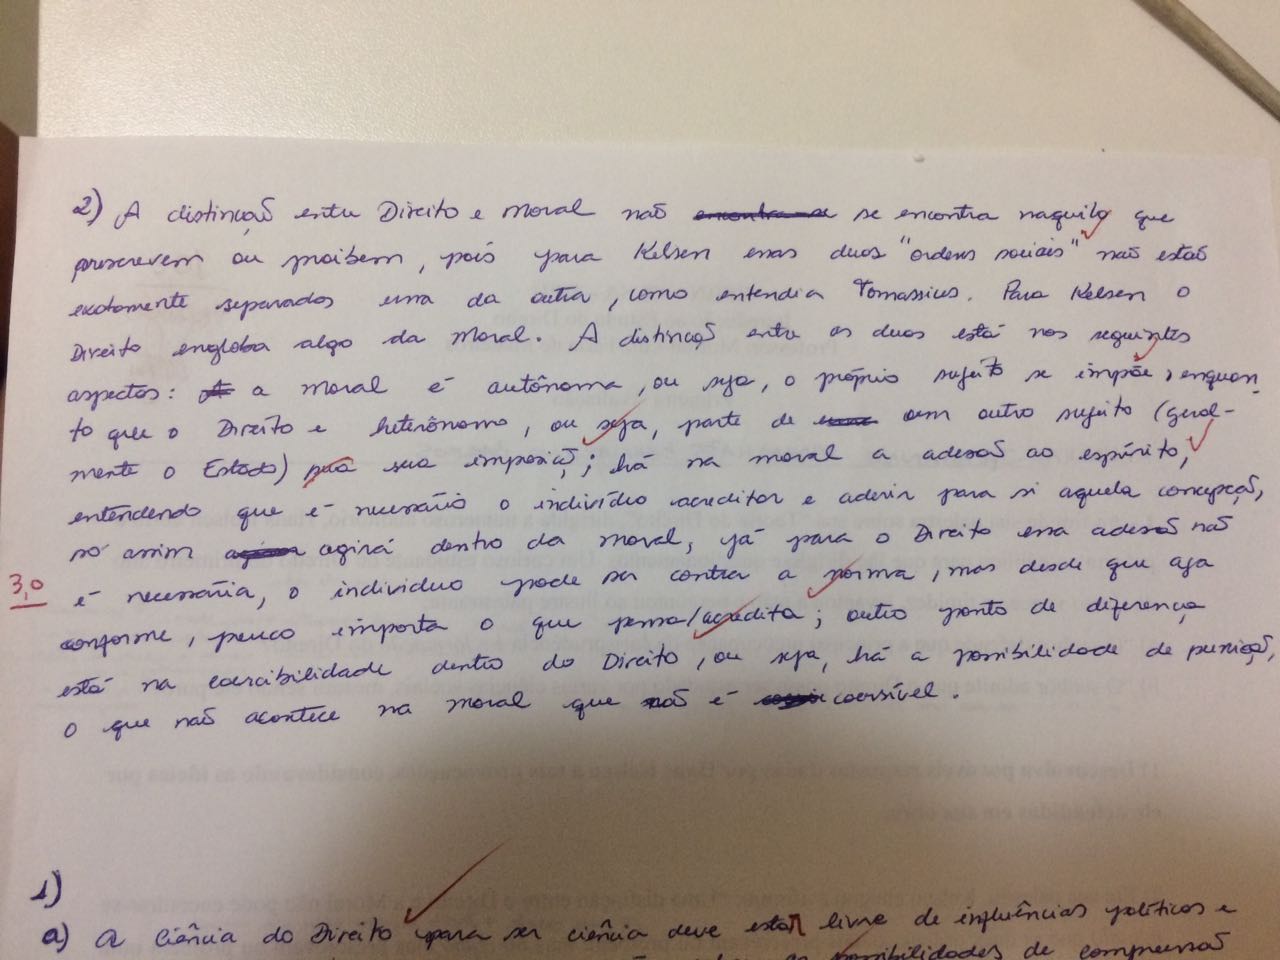 2) A distinção entre Direito e Moral não encontra-se se encontra naquilo que
prescrevem ou proíbem, pois para Kelsen essas duas "ordens sociais" não estão
exatamente separadas uma da outra, como entendia Tomassius. Para Kelsen o
Direito engloba algo da Moral. A distinção entre as duas está nos seguintes
aspectos: A a moral é autônoma, ou seja, o próprio sujeito se impõe, enquan-
to que o Direito é heterônomo, ou seja, parte de um outro sujeito (geral-
mente o Estado) sua imposição; há na moral a adesão ao espírito,
entendendo que é necessário o indivíduo acreditar e aderir para si aquela concepção,
só assim agirá dentro da moral, já para o Direito essa adesão não
é necessária, o individuo pode ser contra a norma, mas desde que aja
3,0
conforme, pouco importa o que pensa/acredita; outro ponto de diferença
está na coercibilidade dentro do Direito, ou seja, há a possibilidade de punição,
o que não acontece na moral que não é coersível.
1)
a) A ciência do Direito para ser ciência deve estar livre de influências políticas e
possibilidades de compreensão